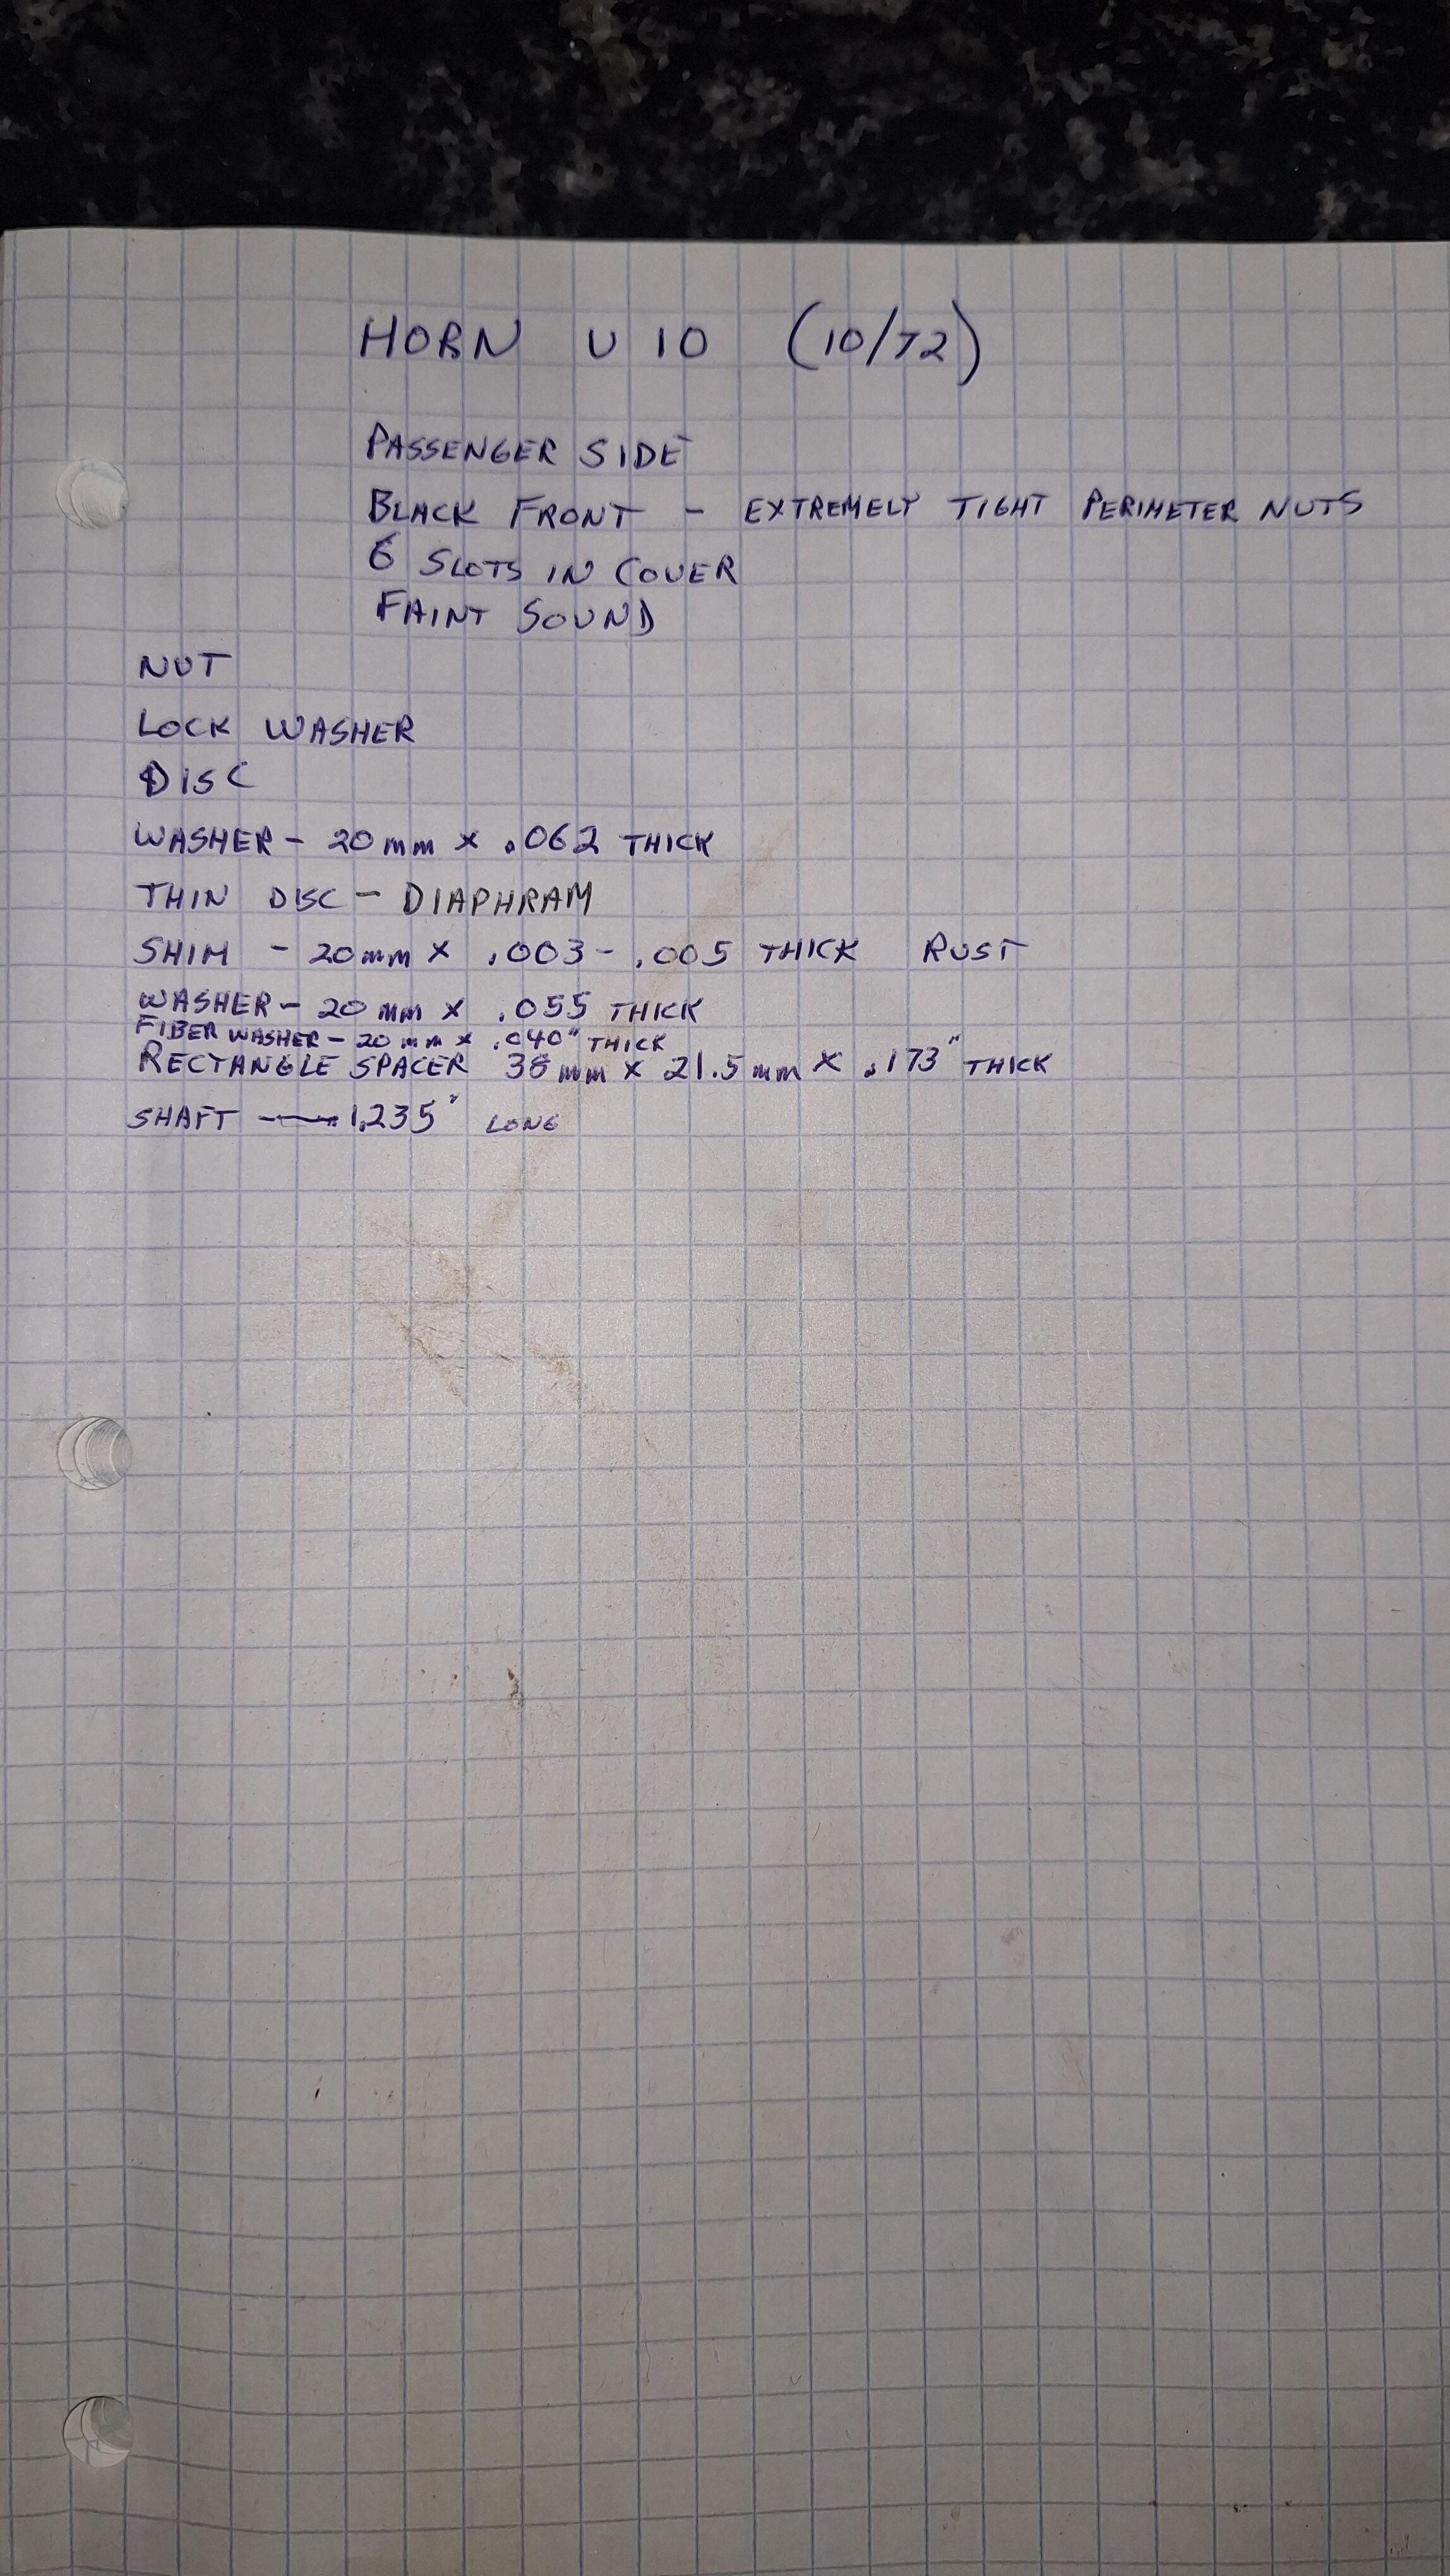 HORN U 10 (10/72)
PASSENGER SIDE
BLACK FRONT - EXTREMELY TIGHT PERIMETER NUTS
6 SLOTS IN COVER
FAINT SOUND
NUT
LOCK WASHER
DISC
WASHER - 20 mm x .062 THICK
THIN DISC - DIAPHRAM
SHIM - 20mm x .003 - .005 THICK RUST
WASHER - 20 mm x .055 THICK
FIBER WASHER - 20 mm x .040" THICK
RECTANGLE SPACER 38 mm x 21.5 mm x .173" THICK
SHAFT — 1.235" LONG